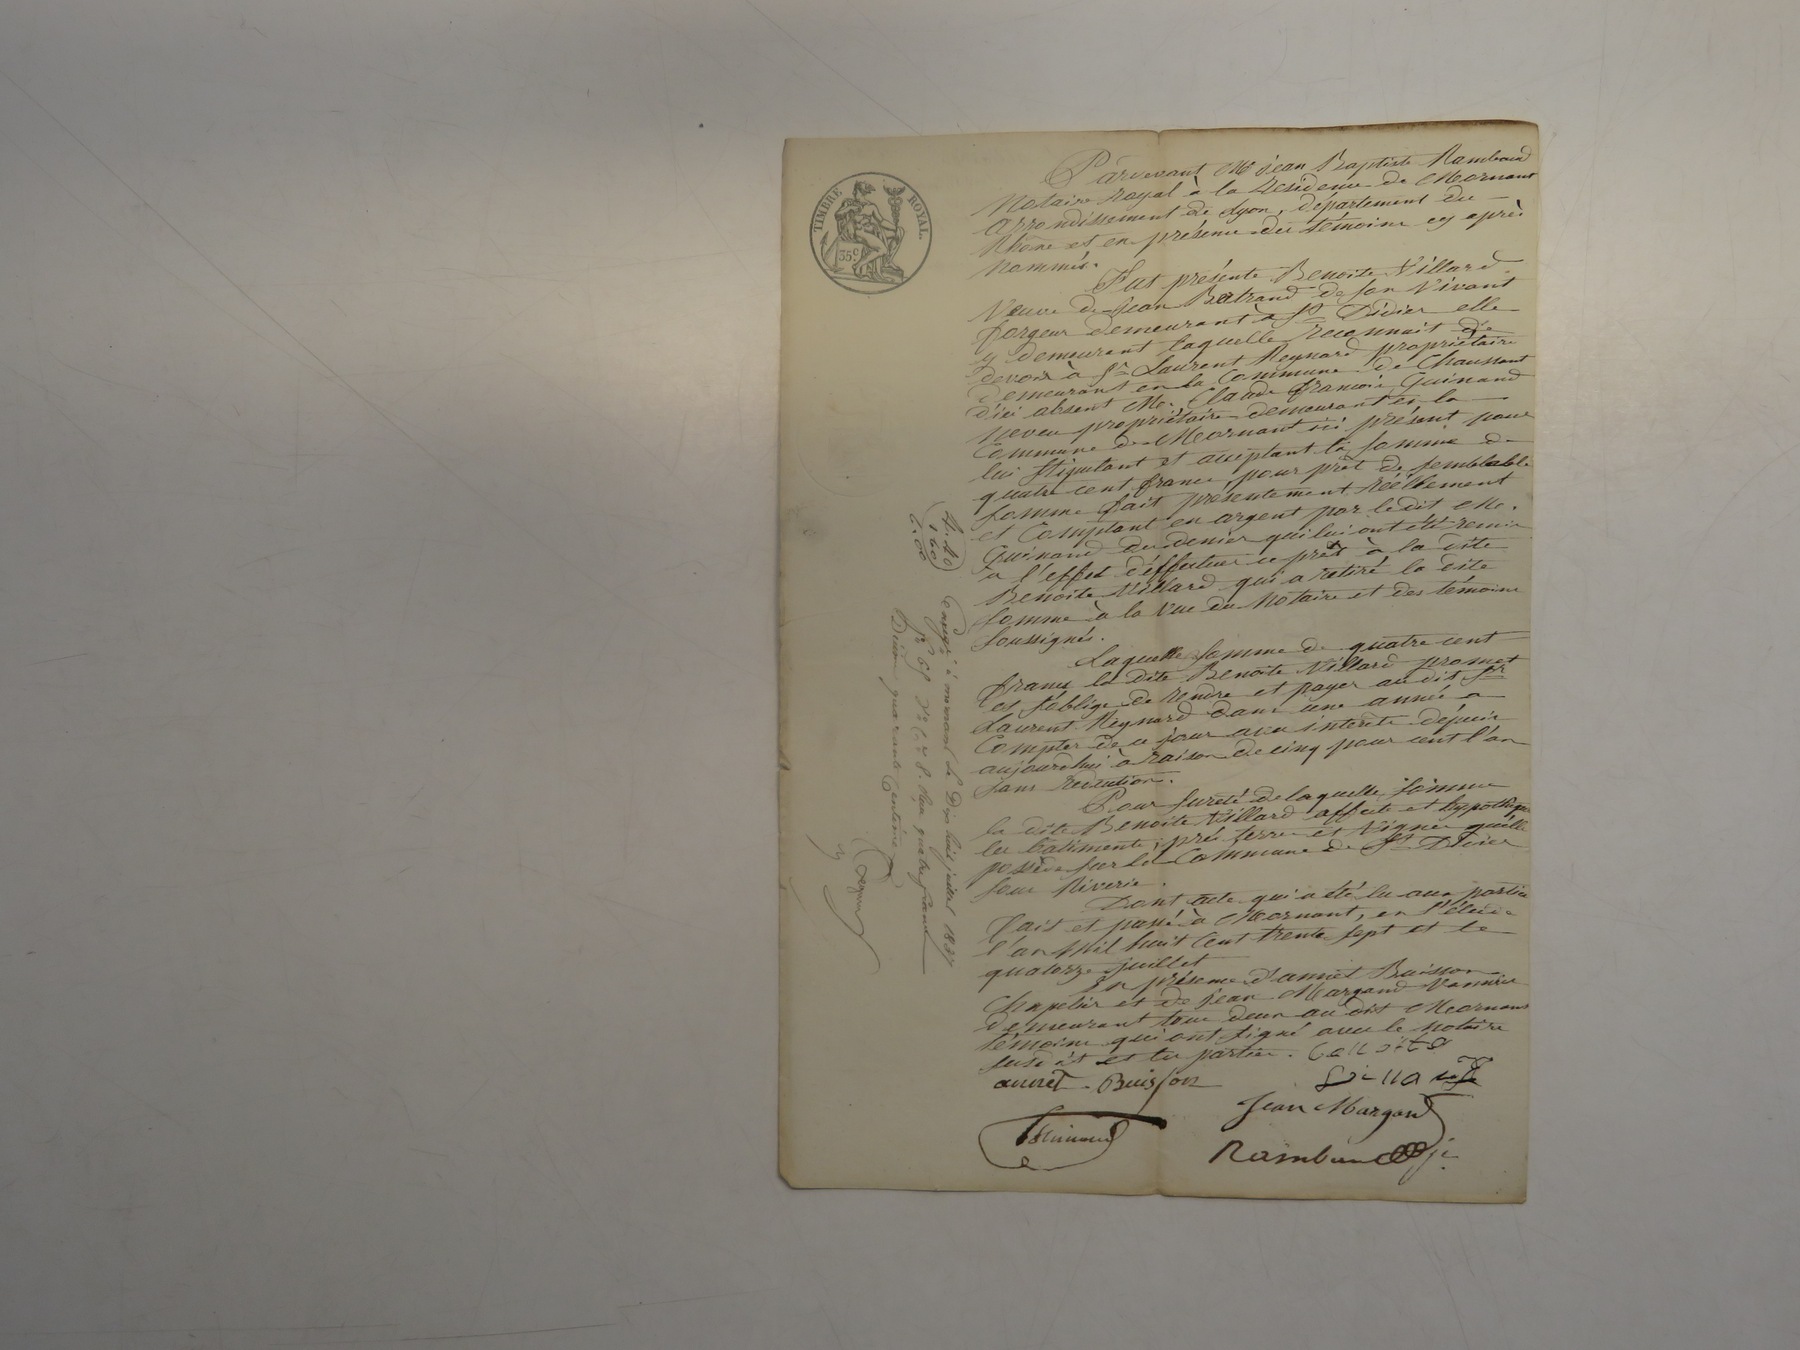 TIMBRE ROYAL.
35c
Pardevant Me Jean Baptiste Rambaud
Notaire royal à la Residence de Mornant
arrondissement de Lyon, département du
Rhône et en présence des témoins cy après
nommés.
Fut présente Benoite Villard
Veuve de Jean Bertrand de son vivant
forgeur demeurant à St Didier elle
y demeurant laquelle reconnait
devoir à Sr Laurent Reynard propriétaire
demeurant en la Commune de Chaussant
d'ici absent Me. Claude françois Guinand
neveu propriétaire demeurant en la
Commune de Mornant ici présent pour
lui stipulant et acceptant la somme de
quatre cent francs, pour prêt de semblable
somme fait présentement réellement
et Comptant en argent par ledit Me.
Guinand des deniers qui lui ont été remis
à l'effet d'effectuer ce prêt à la dite
Benoite Villard qui a retiré la dite
somme à la vue du Notaire et des témoins
soussignés.
Laquelle somme de quatre cent
francs la dite Benoite Villard promet
et s'oblige de rendre et payer au dit Sr
Laurent Reynard dans une année a
Compter de ce jour avec interets depuis
aujourdhui à raison de cinq pour cent l'an
sans retention.
Pour sureté de laquelle somme
la dite Benoite Villard affecte et hypothèque
les batiments, prés terres et Vignes quelle
possède sur la Commune de St Didier
sous Riverie.
Dont acte qui a été lu aux parties
fait et passé à Mornant, en l'étude
l'an Mil huit Cent trente sept et le
quatorze juillet
En présence d'annet Buisson
Chapelier et de Jean Margand Vannier
demeurant tous deux au dit Mornant
témoins qui ont signé avec le notaire
susdit et les parties.
annet Buisson
Jean Margand
Guinand
Rambaud
4.40
Enregé à mornant le Dix huit juillet 1837
fo 69 Vo Reçu quatre francs
Dixième quarante centimes